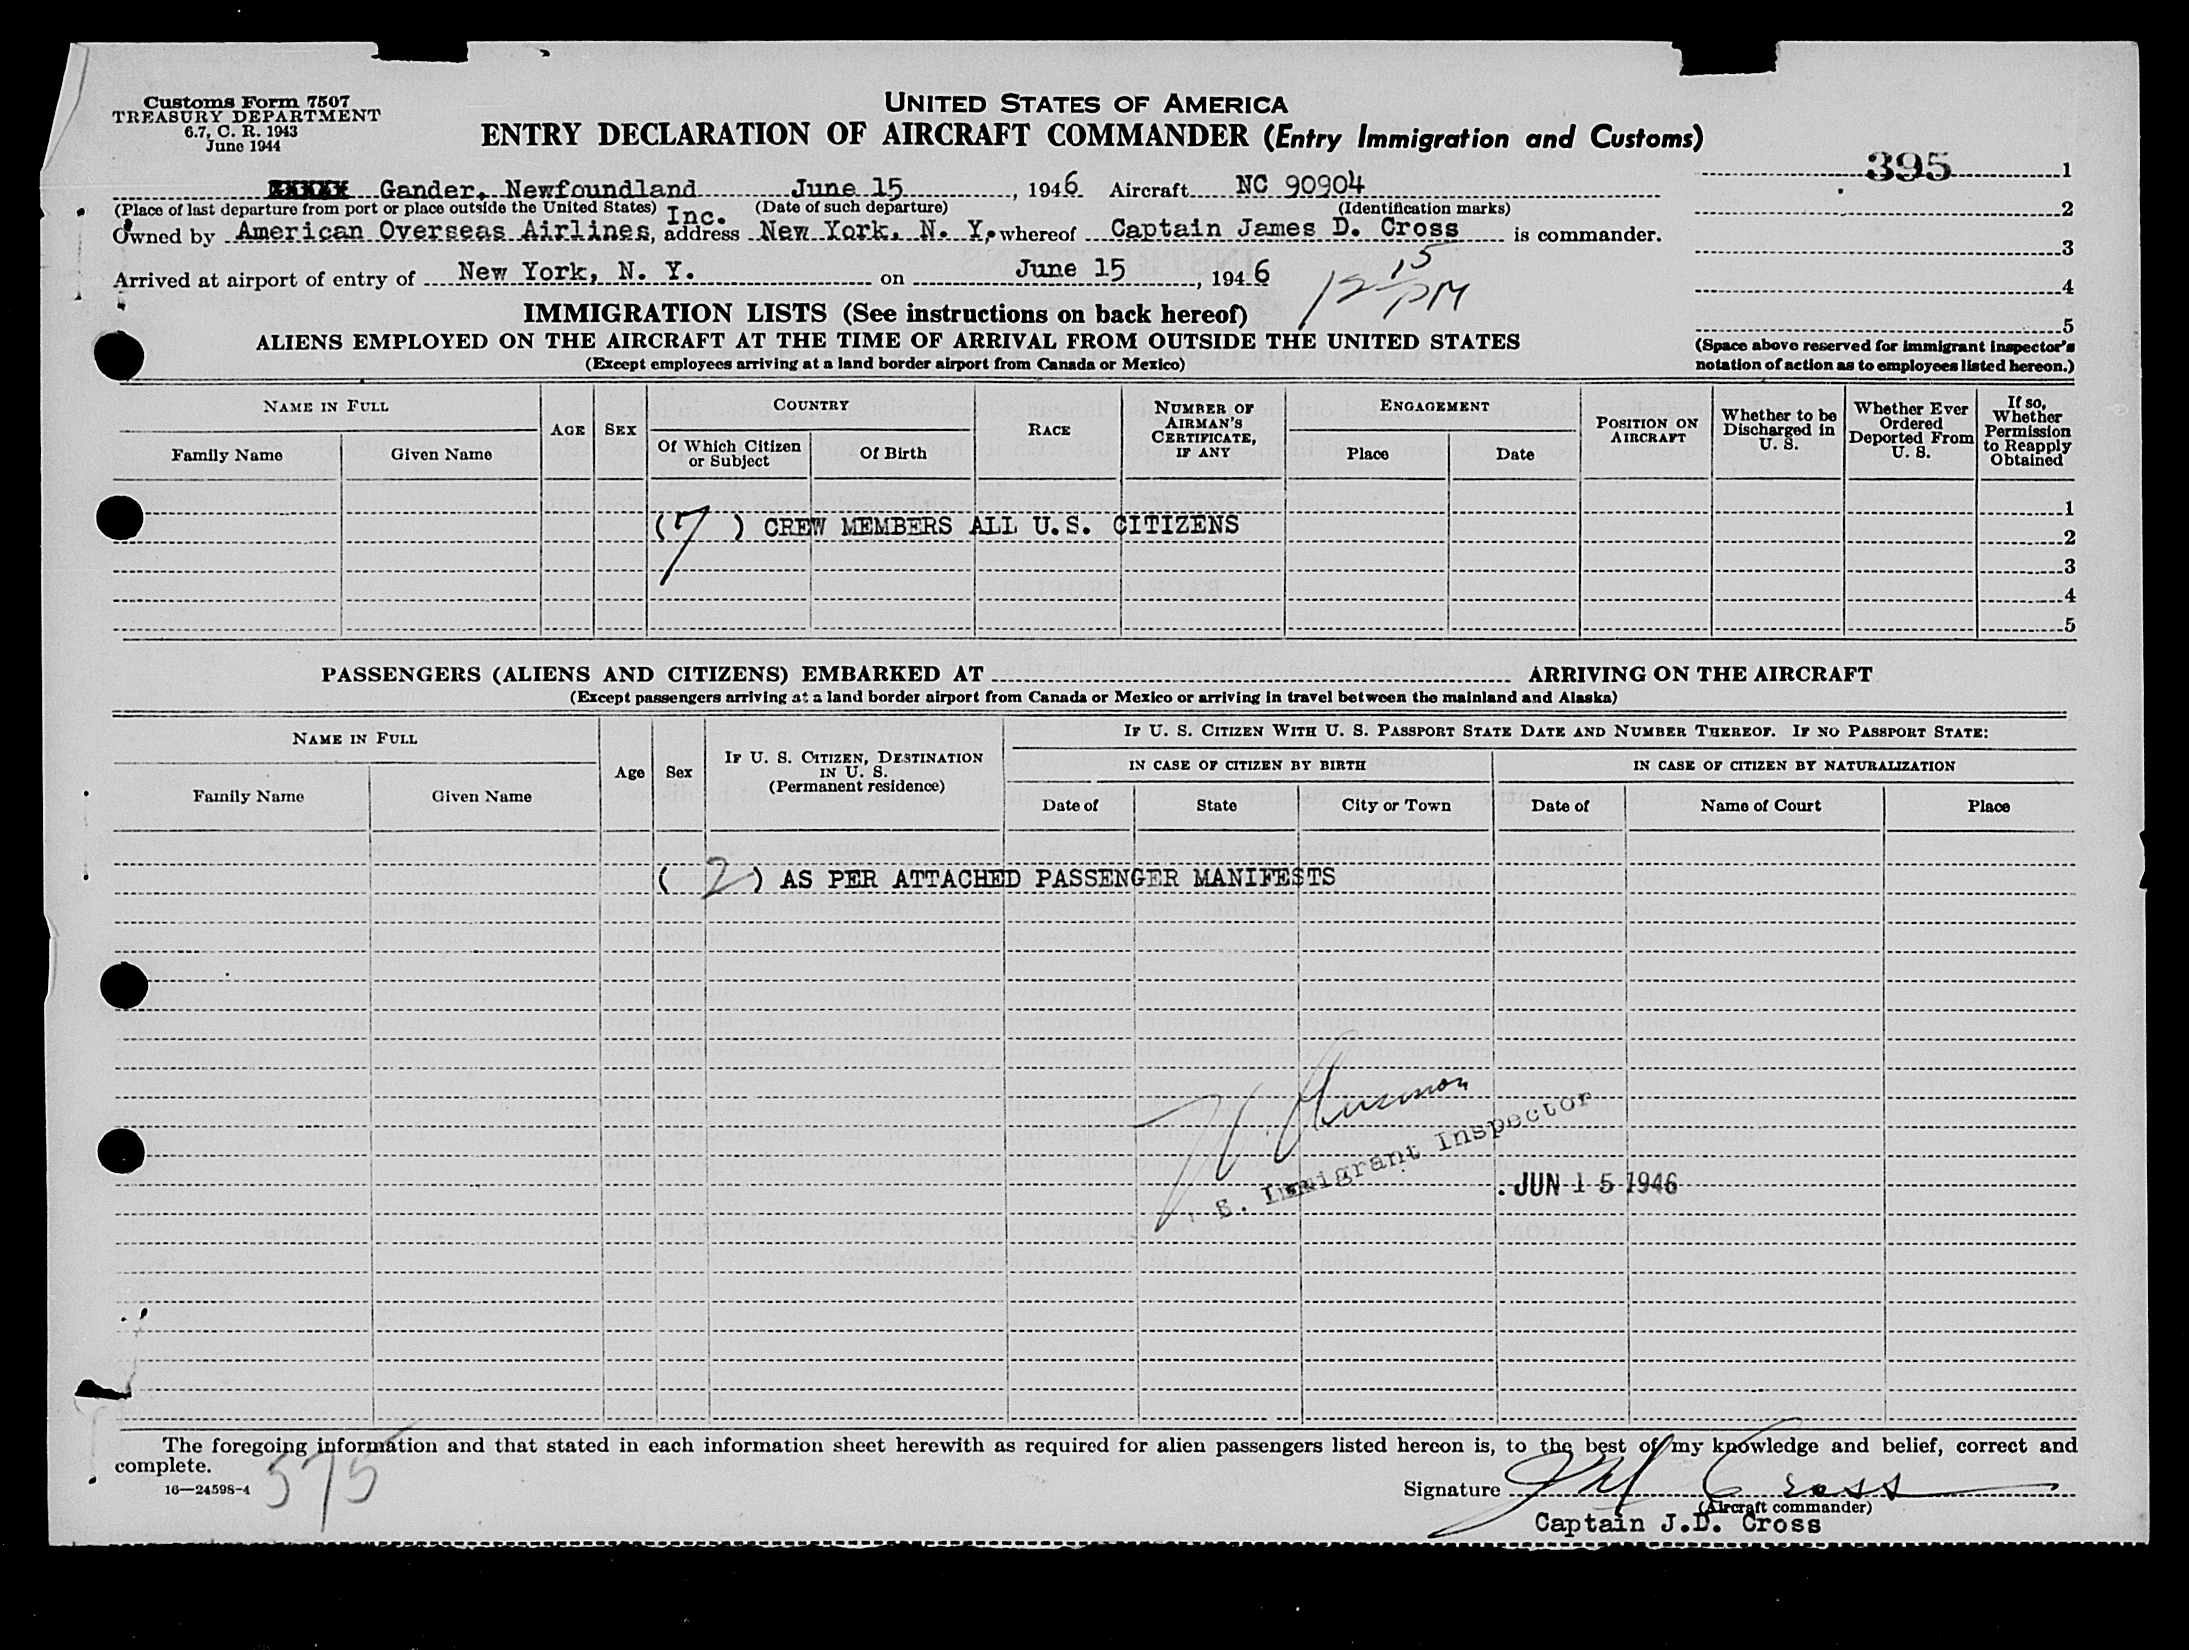 Customs Form 7507
TREASURY DEPARTMENT
6.7, C. R. 1943
June 1944
UNITED STATES OF AMERICA
ENTRY DECLARATION OF AIRCRAFT COMMANDER (Entry Immigration and Customs)
395 1
2
3
4
5
(Space above reserved for immigrant inspector's
notation of action as to employees listed hereon.)
Gander, Newfoundland June 15, 1946 Aircraft NC 90904
(Place of last departure from port or place outside the United States) (Date of such departure) (Identification marks)
Owned by American Overseas Airlines, Inc. address New York, N. Y., whereof Captain James D. Cross is commander.
Arrived at airport of entry of New York, N. Y. on June 15, 1946 12 15 PM
IMMIGRATION LISTS (See instructions on back hereof)
ALIENS EMPLOYED ON THE AIRCRAFT AT THE TIME OF ARRIVAL FROM OUTSIDE THE UNITED STATES
(Except employees arriving at a land border airport from Canada or Mexico)
NAME IN FULL
Family Name
Given Name
AGE
SEX
COUNTRY
Of Which Citizen or Subject
Of Birth
RACE
NUMBER OF AIRMAN'S CERTIFICATE, IF ANY
ENGAGEMENT
Place
Date
POSITION ON AIRCRAFT
Whether to be Discharged in U. S.
Whether Ever Ordered Deported From U. S.
If so, Whether Permission to Reapply Obtained
1
(7) CREW MEMBERS ALL U.S. CITIZENS
2
3
4
5
PASSENGERS (ALIENS AND CITIZENS) EMBARKED AT ARRIVING ON THE AIRCRAFT
(Except passengers arriving at a land border airport from Canada or Mexico or arriving in travel between the mainland and Alaska)
NAME IN FULL
Family Name
Given Name
Age
Sex
IF U. S. CITIZEN, DESTINATION IN U. S.
(Permanent residence)
IF U. S. CITIZEN WITH U. S. PASSPORT STATE DATE AND NUMBER THEREOF. IF NO PASSPORT STATE:
IN CASE OF CITIZEN BY BIRTH
IN CASE OF CITIZEN BY NATURALIZATION
Date of
State
City or Town
Date of
Name of Court
Place
(2) AS PER ATTACHED PASSENGER MANIFESTS
S. Immigrant Inspector
JUN 15 1946
The foregoing information and that stated in each information sheet herewith as required for alien passengers listed hereon is, to the best of my knowledge and belief, correct and
complete.
16—24598-4
575
Signature J D Cross
(Aircraft commander)
Captain J.D. Cross